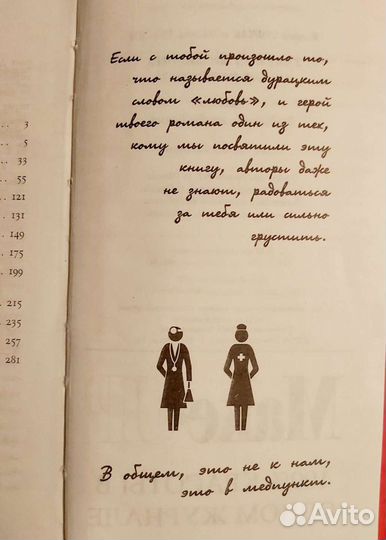 Если с тобой произошло то,
что называется дурацким
словом «любовь», и герой
твоего романа один из тех,
кому мы посвятили эту
книгу, авторы даже
не знают, радоваться
за тебя или сильно
грустить.
3
5
33
55
121
131
149
175
199
215
235
257
281
В общем, это не к нам,
это в медпункт.
Avito